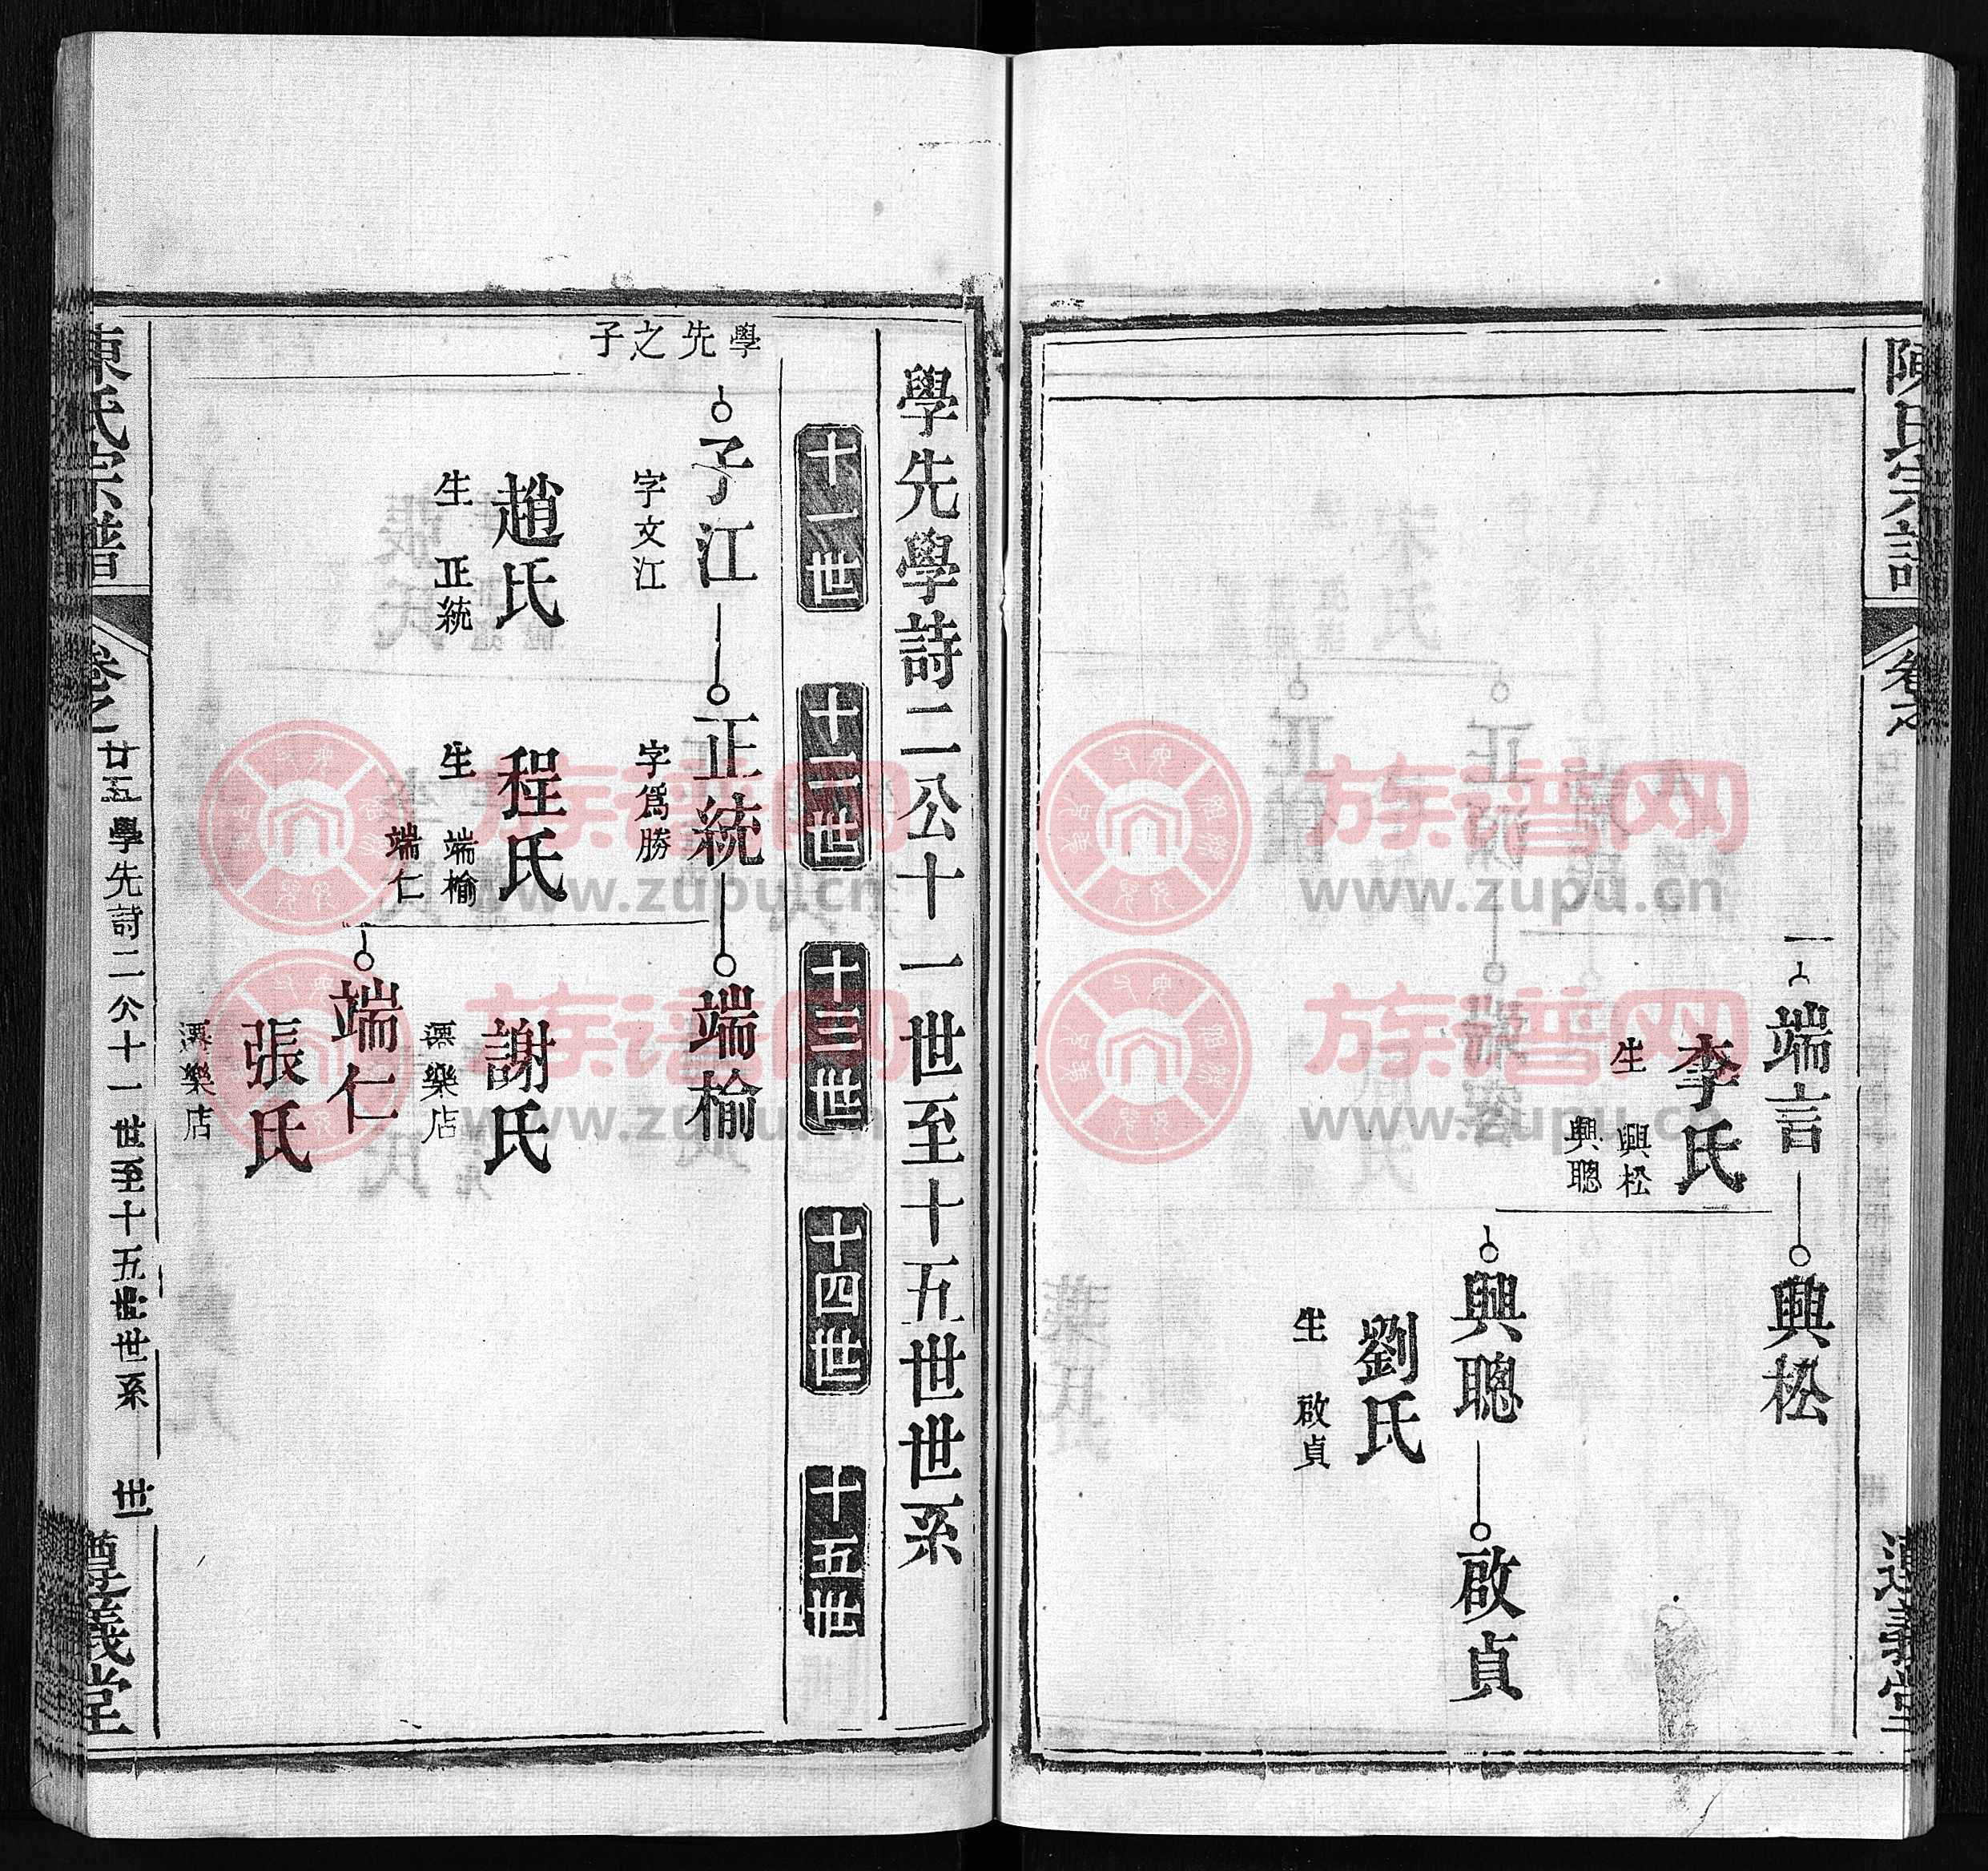 陳氏宗譜
卷之
遵義堂
端言
李氏
生
興松
興聰
興松
興聰
劉氏
生
啟貞
啟貞
學先學詩二公十一世至十五世世系
十一世
十二世
十三世
十四世
十五世
學先之子
子江
字文江
趙氏
生
正統
正統
字為勝
程氏
生
端榆
端仁
端榆
謝氏
溧樂店
端仁
張氏
溧樂店
陳氏宗譜
卷之
廿五學先詩二公十一世至十五世世系
世
遵義堂
族谱网
www.zupu.cn
族谱网
www.zupu.cn
族谱网
www.zupu.cn
族谱网
www.zupu.cn